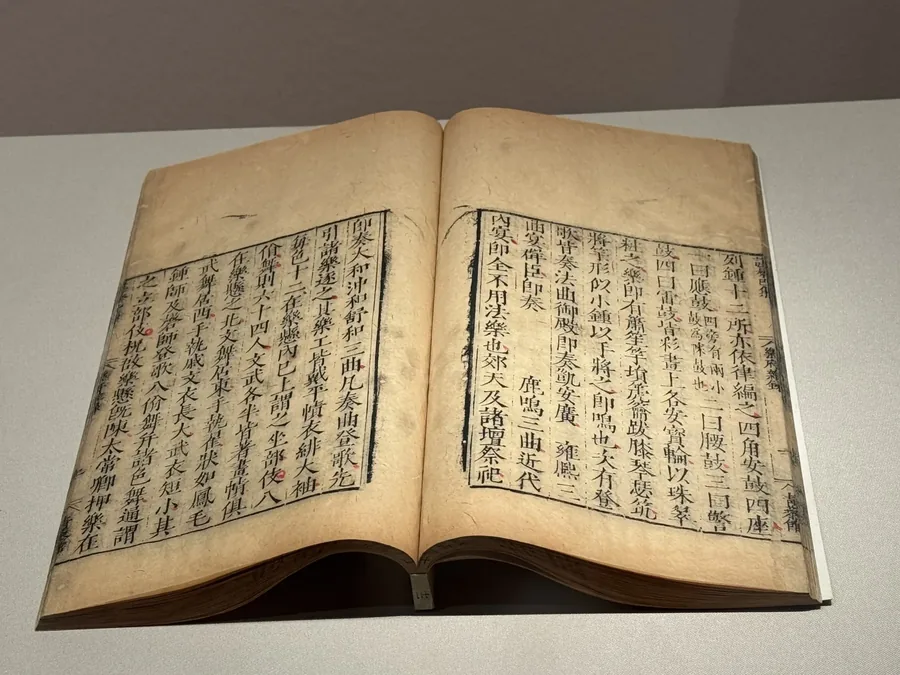 列鍾十二所亦依律編之四角安鼓四座
一曰應鼓四旁有兩小鼓爲鼓也二曰腰鼓三曰警
鼓四曰雷鼓皆彩畫上各安寶輪以珠翠
粧之樂即有簫笙竽塤箎籥跋膝琴瑟筑
將竽形似小鍾以手將之即鳴也次有登
歌皆奏法曲御殿即奏凱安廣 雍熙三
曲宴群臣即奏 鹿鳴三曲近代
內宴即全不用法樂也郊天及諸壇祭祀
即奏太和沖和舒和三曲凡奏曲登歌先
引諸樂逐之其樂工皆戴平幘衣緋大袖
每色十二在樂懸內已上謂之坐部伎八
佾舞則六十四人文武各半皆著畫幘俱
在樂懸之北文舞居東手執翟狀如鳳毛
武舞居西手執戚文衣長大武衣短小其
鍾師及磬師登歌八佾舞并諸色舞通謂
之立部伎柷敔樂懸旣陳太常卿押樂在